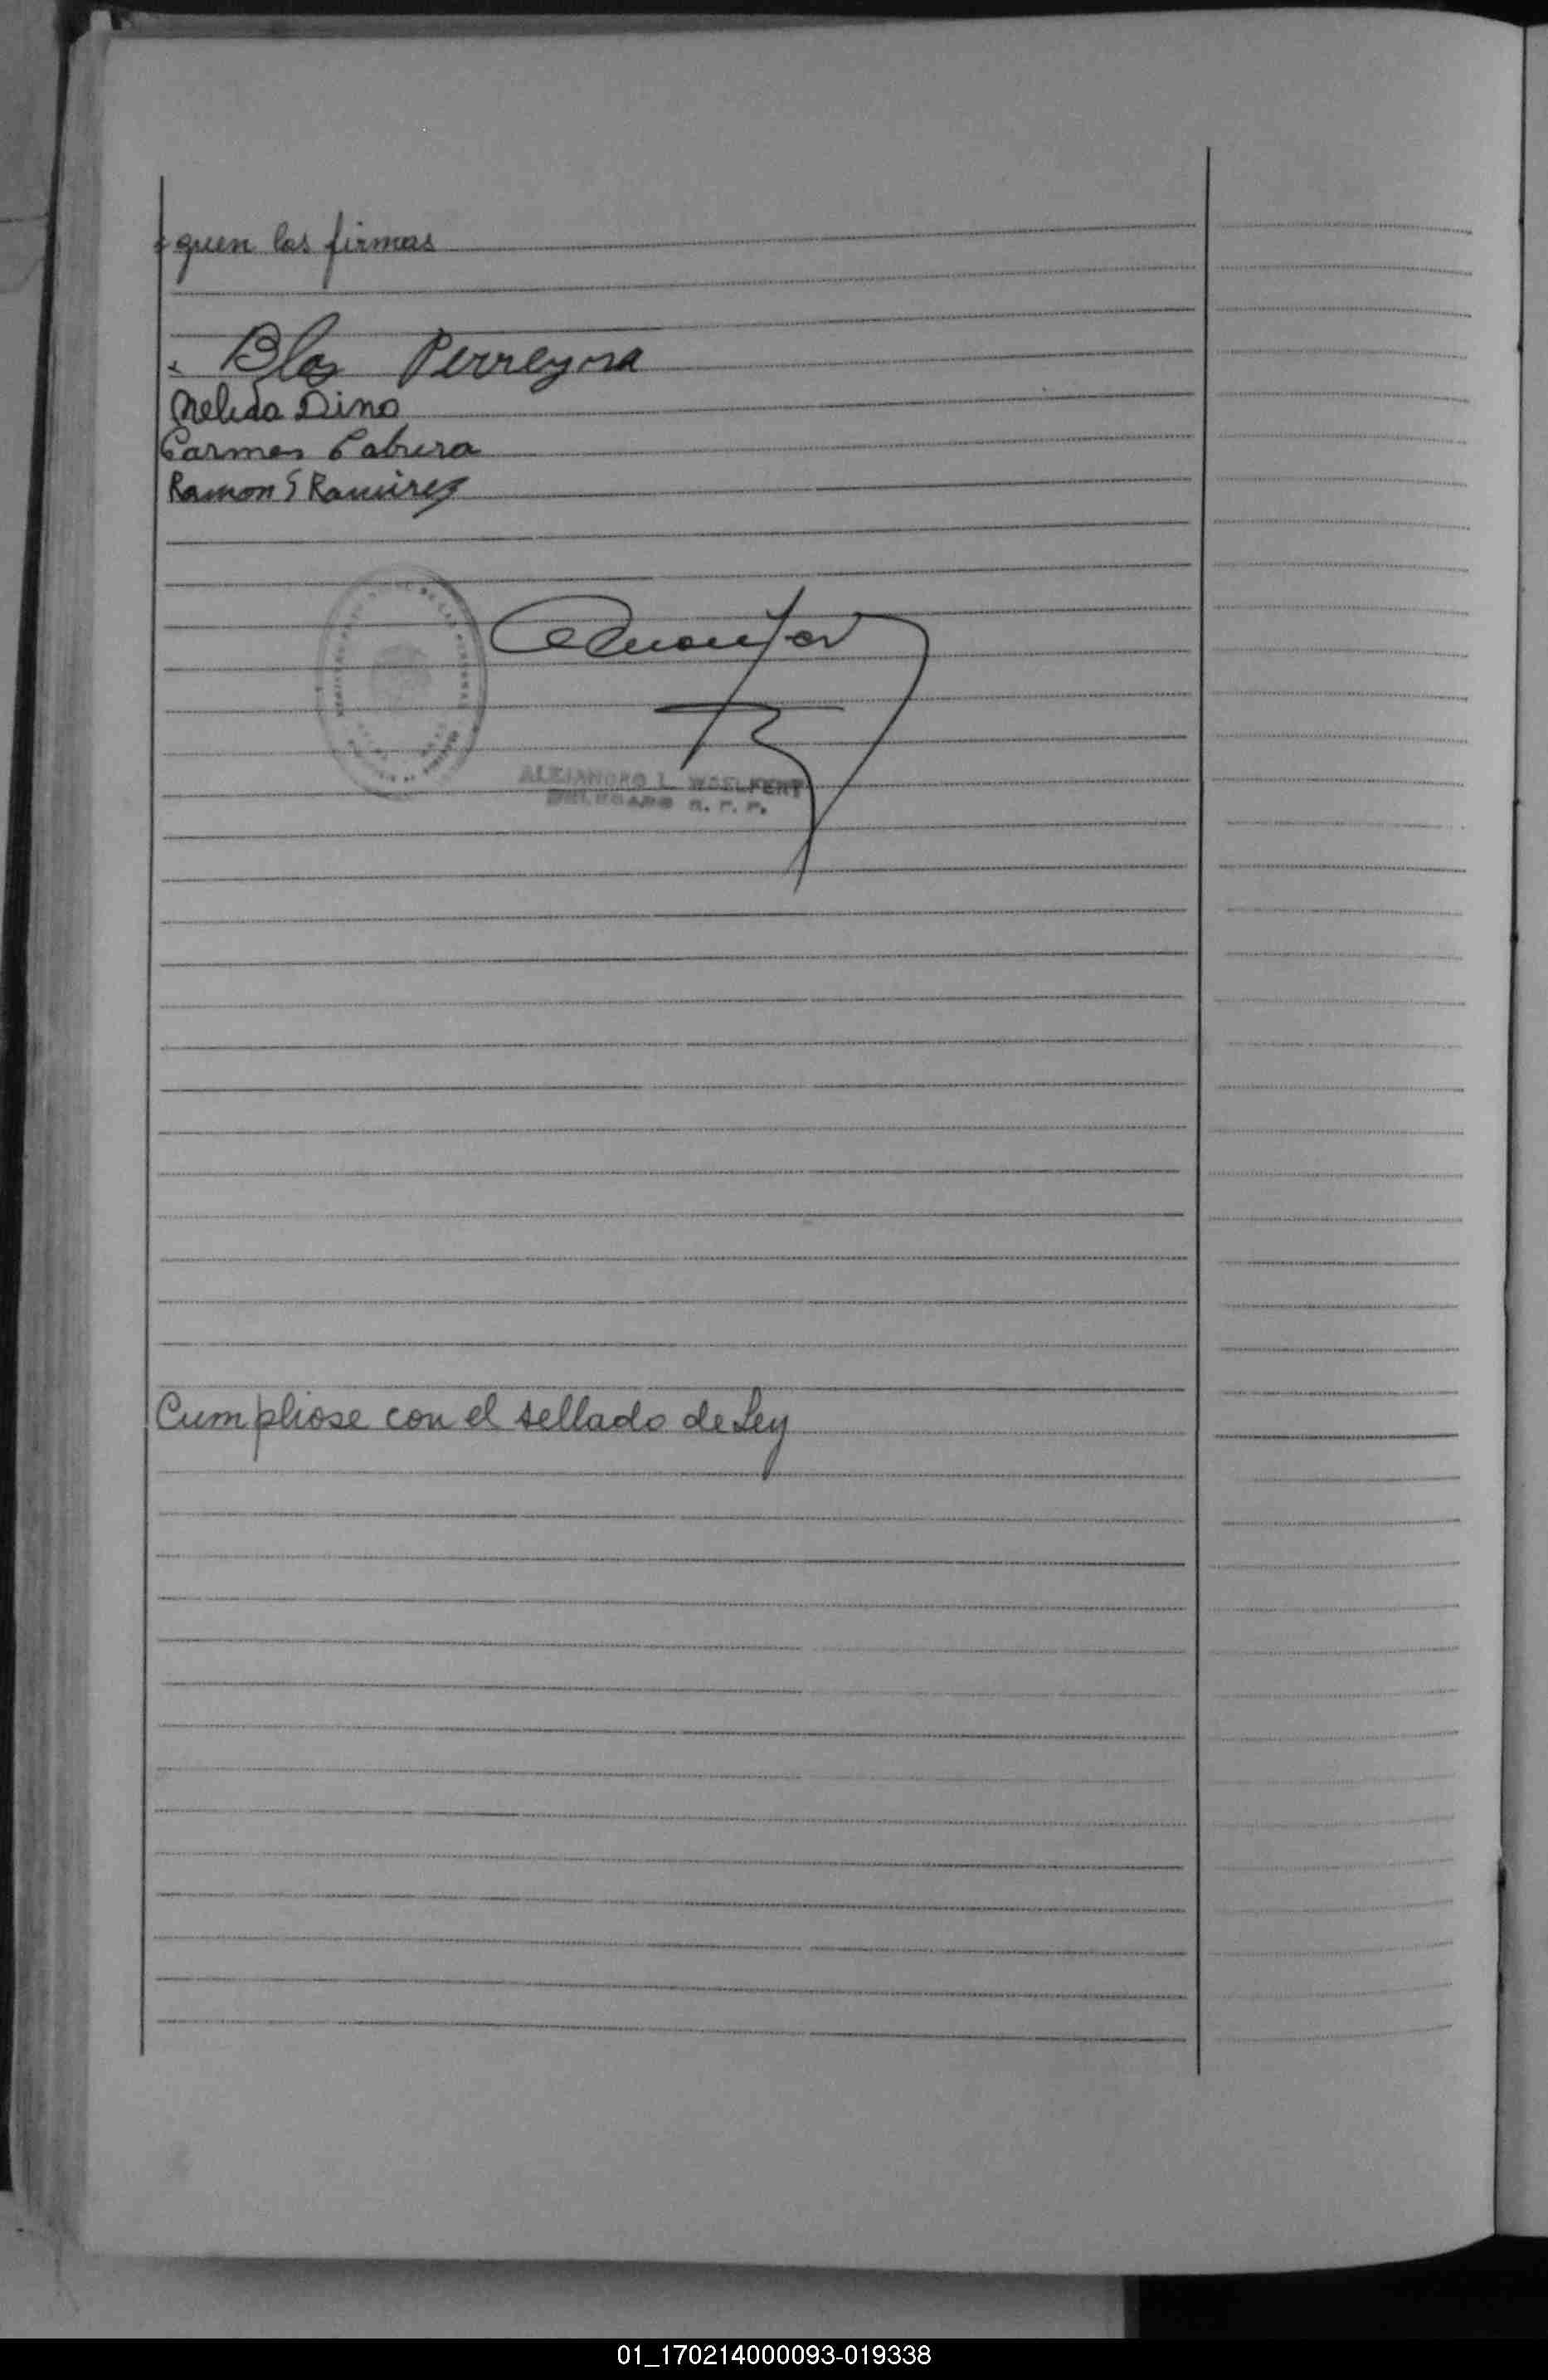 guen las firmas
Blas Perreyra
Nelida Dino
Carmen Cabrera
Ramon S Ramirez
ALEJANDRO L. WOELFERT
DELEGADO R. P. P.
Cumpliose con el sellado de Ley
01_170214000093-019338